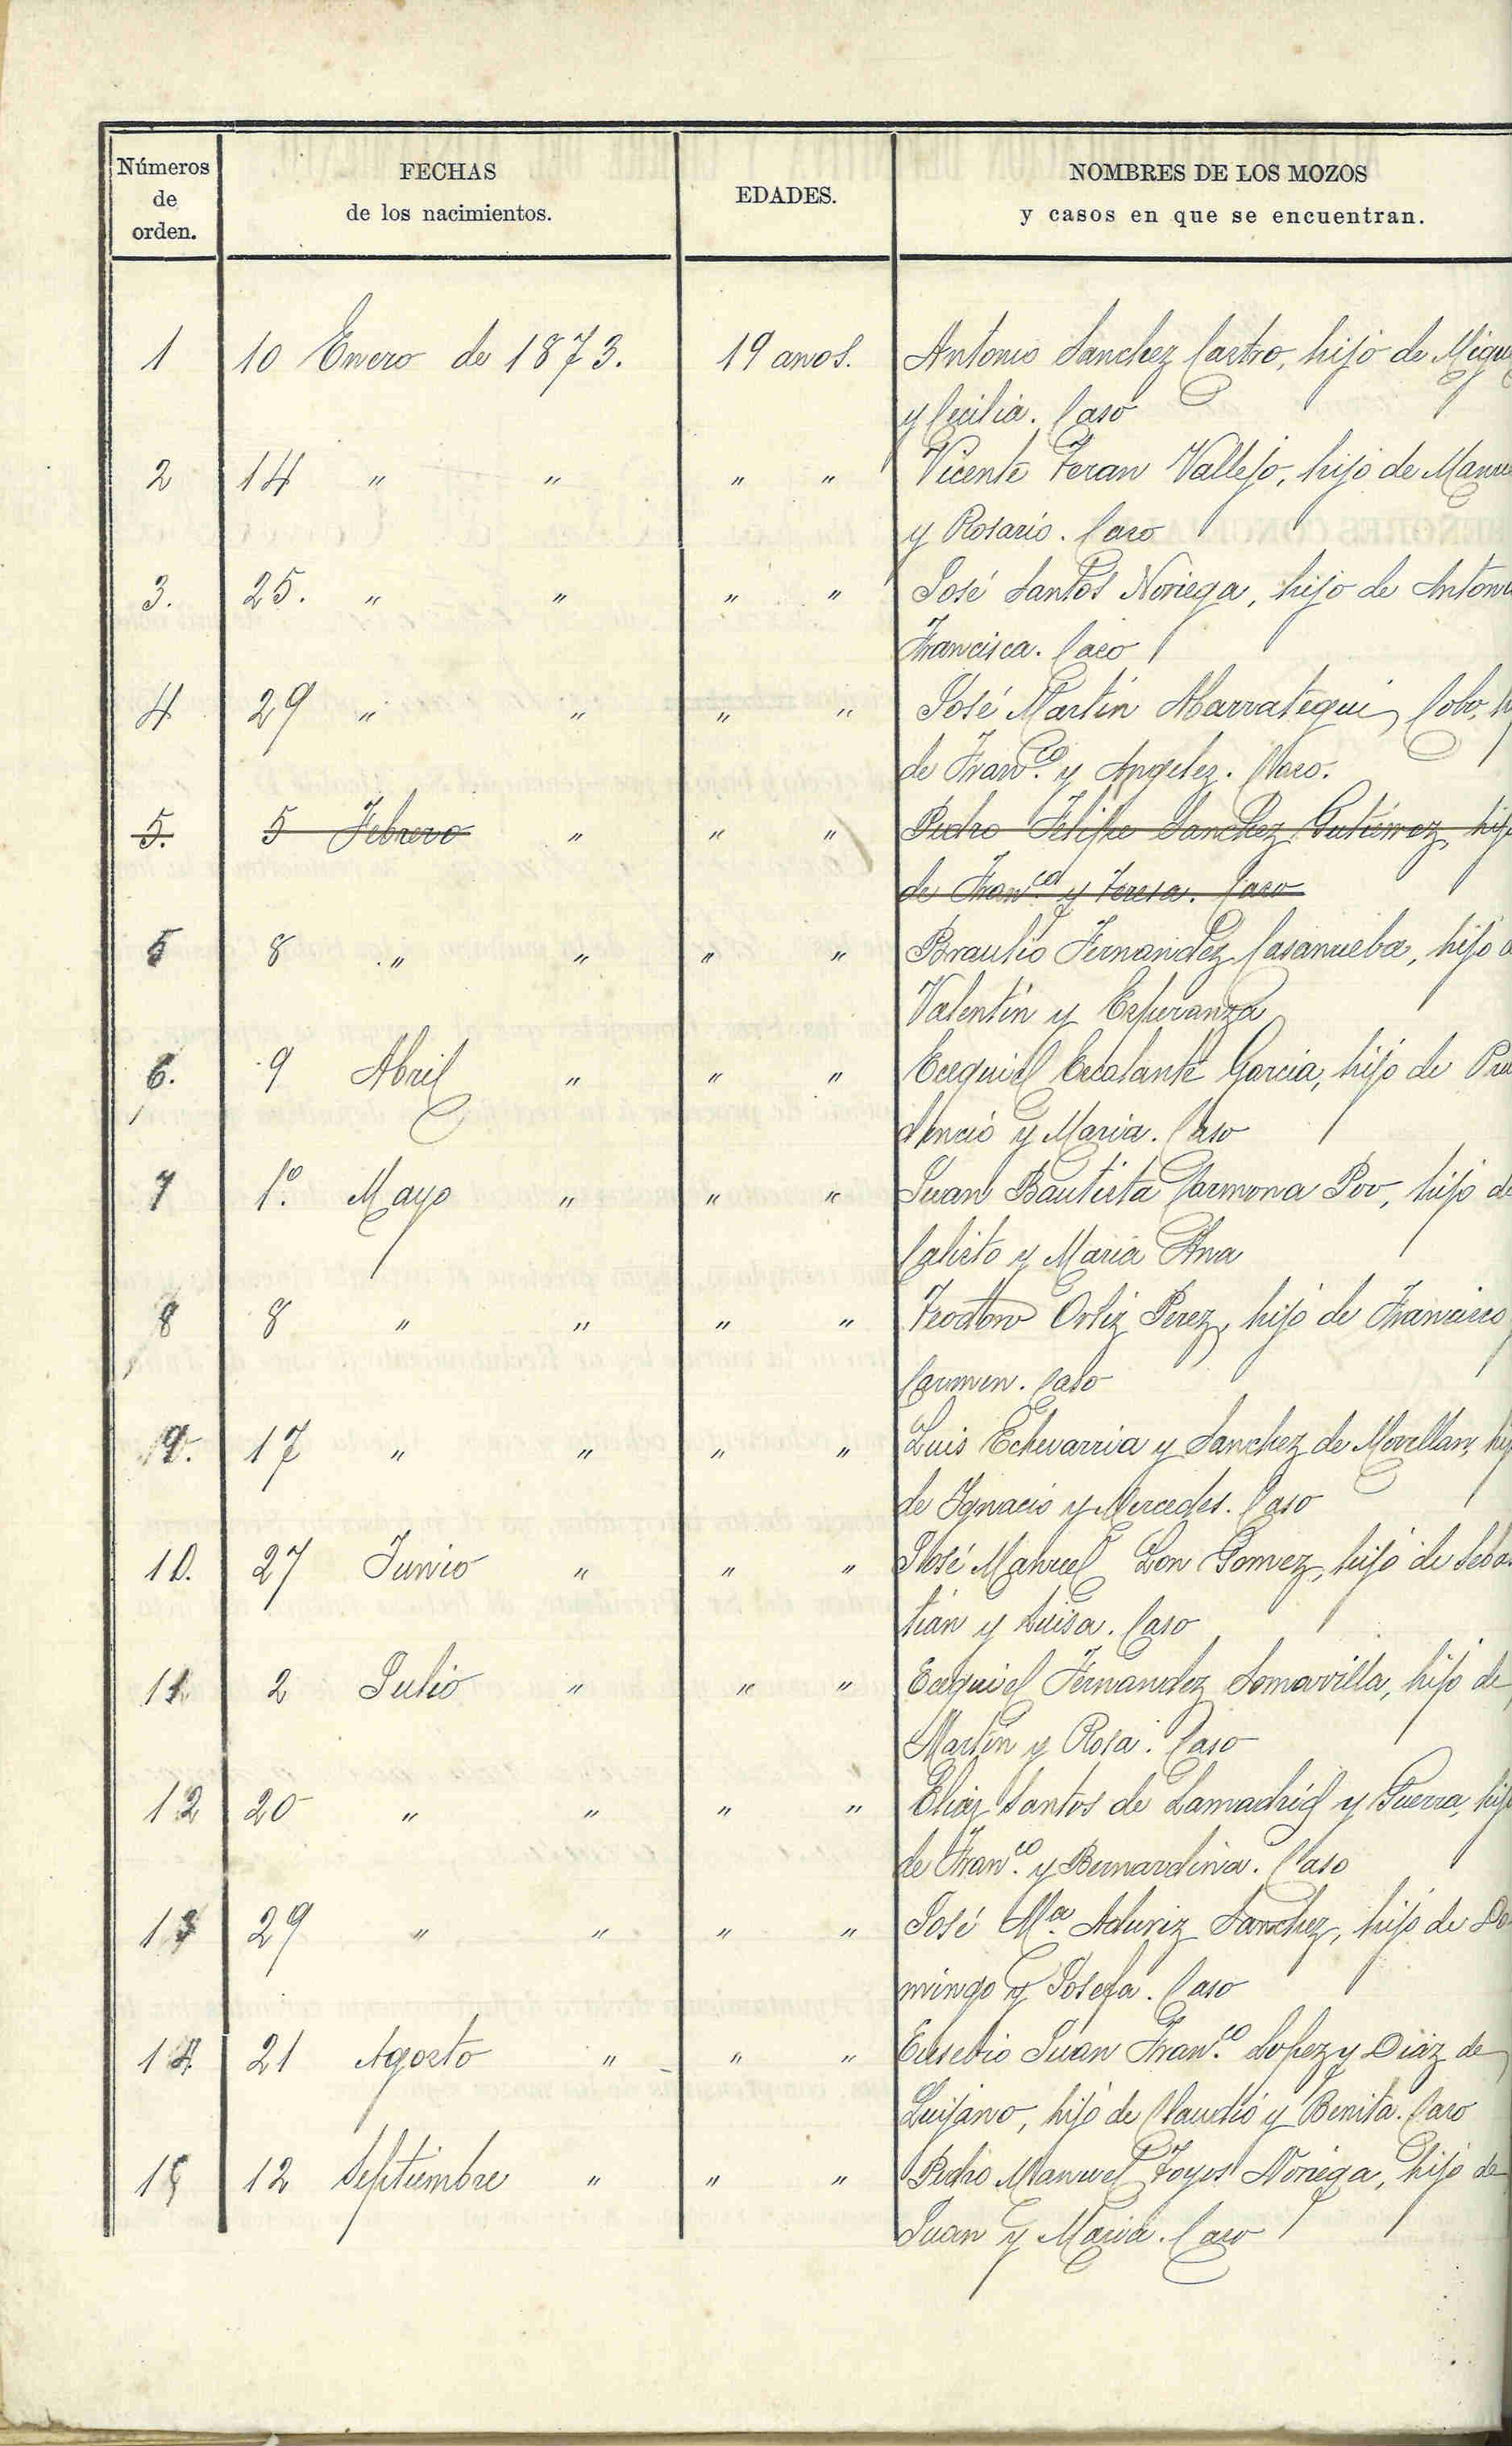 Números de orden.
FECHAS
de los nacimientos.
EDADES.
NOMBRES DE LOS MOZOS
y casos en que se encuentran.
1 10 Enero de 1873. 19 anos. Antonio Sanchez Castro, hijo de Migue
y Cecilia. Caso
2 14 " " " " Vicente Teran Vallejo, hijo de Manue
y Rosario. Caso
3. 25. " " " " José Santos Noriega, hijo de Antoni
Francisca. Caso
4 29 " " " " José Martin Abarrategui Cobo, h
de Fran.co y Angeles. Caso.
5. 5 Febrero " " " Pedro Felipe Sanchez Gutierrez, hijo
de Fran.co y Teresa. Caso
5 8 " " " " Braulio Fernandez Casanueba, hijo d
Valentin y Esperanza
6. 9 Abril " " " Ecequiel Escalante Garcia, hijo de Pru
dencio y Maria. Caso
7 1º. Mayo " " " Juan Bautista Carmona Poo, hijo de
Calisto y Maria Ana
8 8 " " " " Teodoro Ortiz Perez, hijo de Francisco
Carmen. Caso
9. 17 " " " " Luis Echevarria y Sanchez de Movellan, hij
de Ignacio y Mercedes. Caso
10. 27 Junio " " " José Manuel Lon Gomez, hijo de Sebas
tián y Luisa. Caso
11 2 Julio " " " Ecequiel Fernandez Somavilla, hijo de
Martin y Rosa. Caso
12 20 " " " " Elias Santos de Lamadrid y Guerra, hijo
de Fran.co y Bernardina. Caso
13 29 " " " " José M.a Aduriz Sanchez, hijo de Do
mingo y Josefa. Caso
14 21 Agosto " " " Eusebio Juan Fran.co Lopez y Diaz de
Quijano, hijo de Claudio y Benita. Caso
15 12 Septiembre " " " Pedro Manuel Foyos Noriega, hijo de
Juan y Maria. Caso